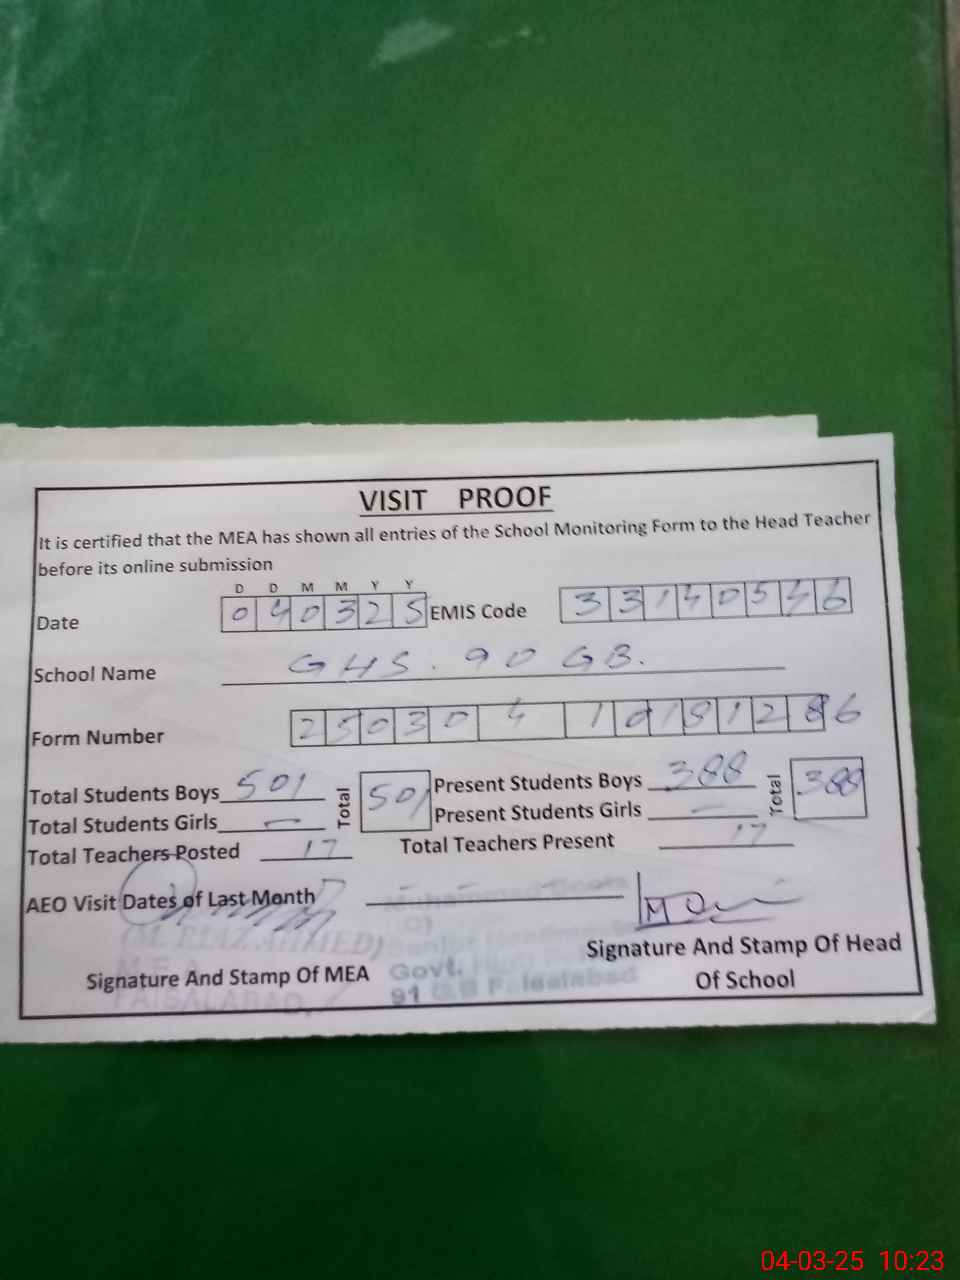 VISIT PROOF
It is certified that the MEA has shown all entries of the School Monitoring Form to the Head Teacher
before its online submission
D D M M Y Y
Date 040325 EMIS Code 33140546
School Name GHS. 90 GB.
Form Number
Total Students Boys 501 Total 501 Present Students Boys 388 Total 388
Total Students Girls — Present Students Girls —
Total Teachers Posted 17 Total Teachers Present 17
AEO Visit Dates of Last Month
(M. RIAZ AHMED)
Signature And Stamp Of Head
Of School
Signature And Stamp Of MEA
Govt.
91 GB Faisalabad
FAISALABAD.
04-03-25 10:23